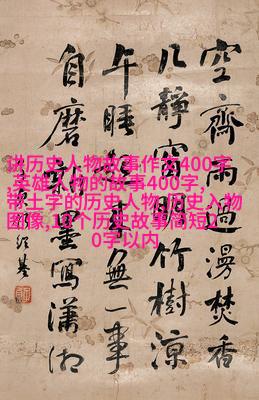 空齋雨過漫焚香
几靜窗明竹樹涼
午睡起來無一事
自磨新墨寫瀟湘
讲历史人物故事作文400字
,英雄人物的故事400字,
带土字的历史人物,历史人物
图像,10个历史故事简短2
0字以内